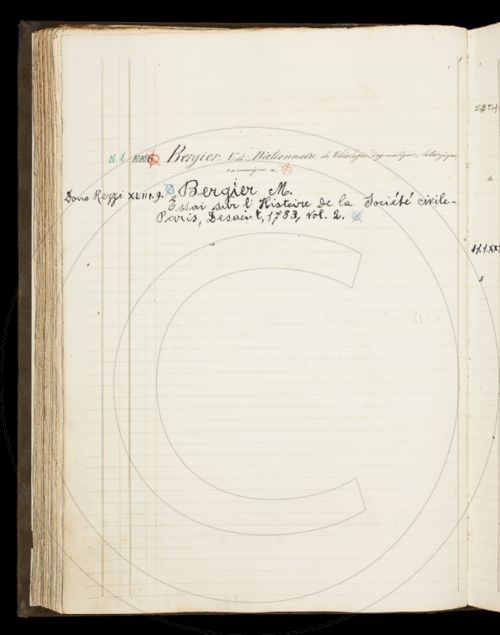 N. E Bergier Vedi: Dictionnaire de Théologie, dogmatique, liturgique,
canonique
Dono Rezzi XLIII.9. Bergier M.
Essai sur l'Histoire de la Société civile-
Paris, Desaint, 1783, vol. 2.